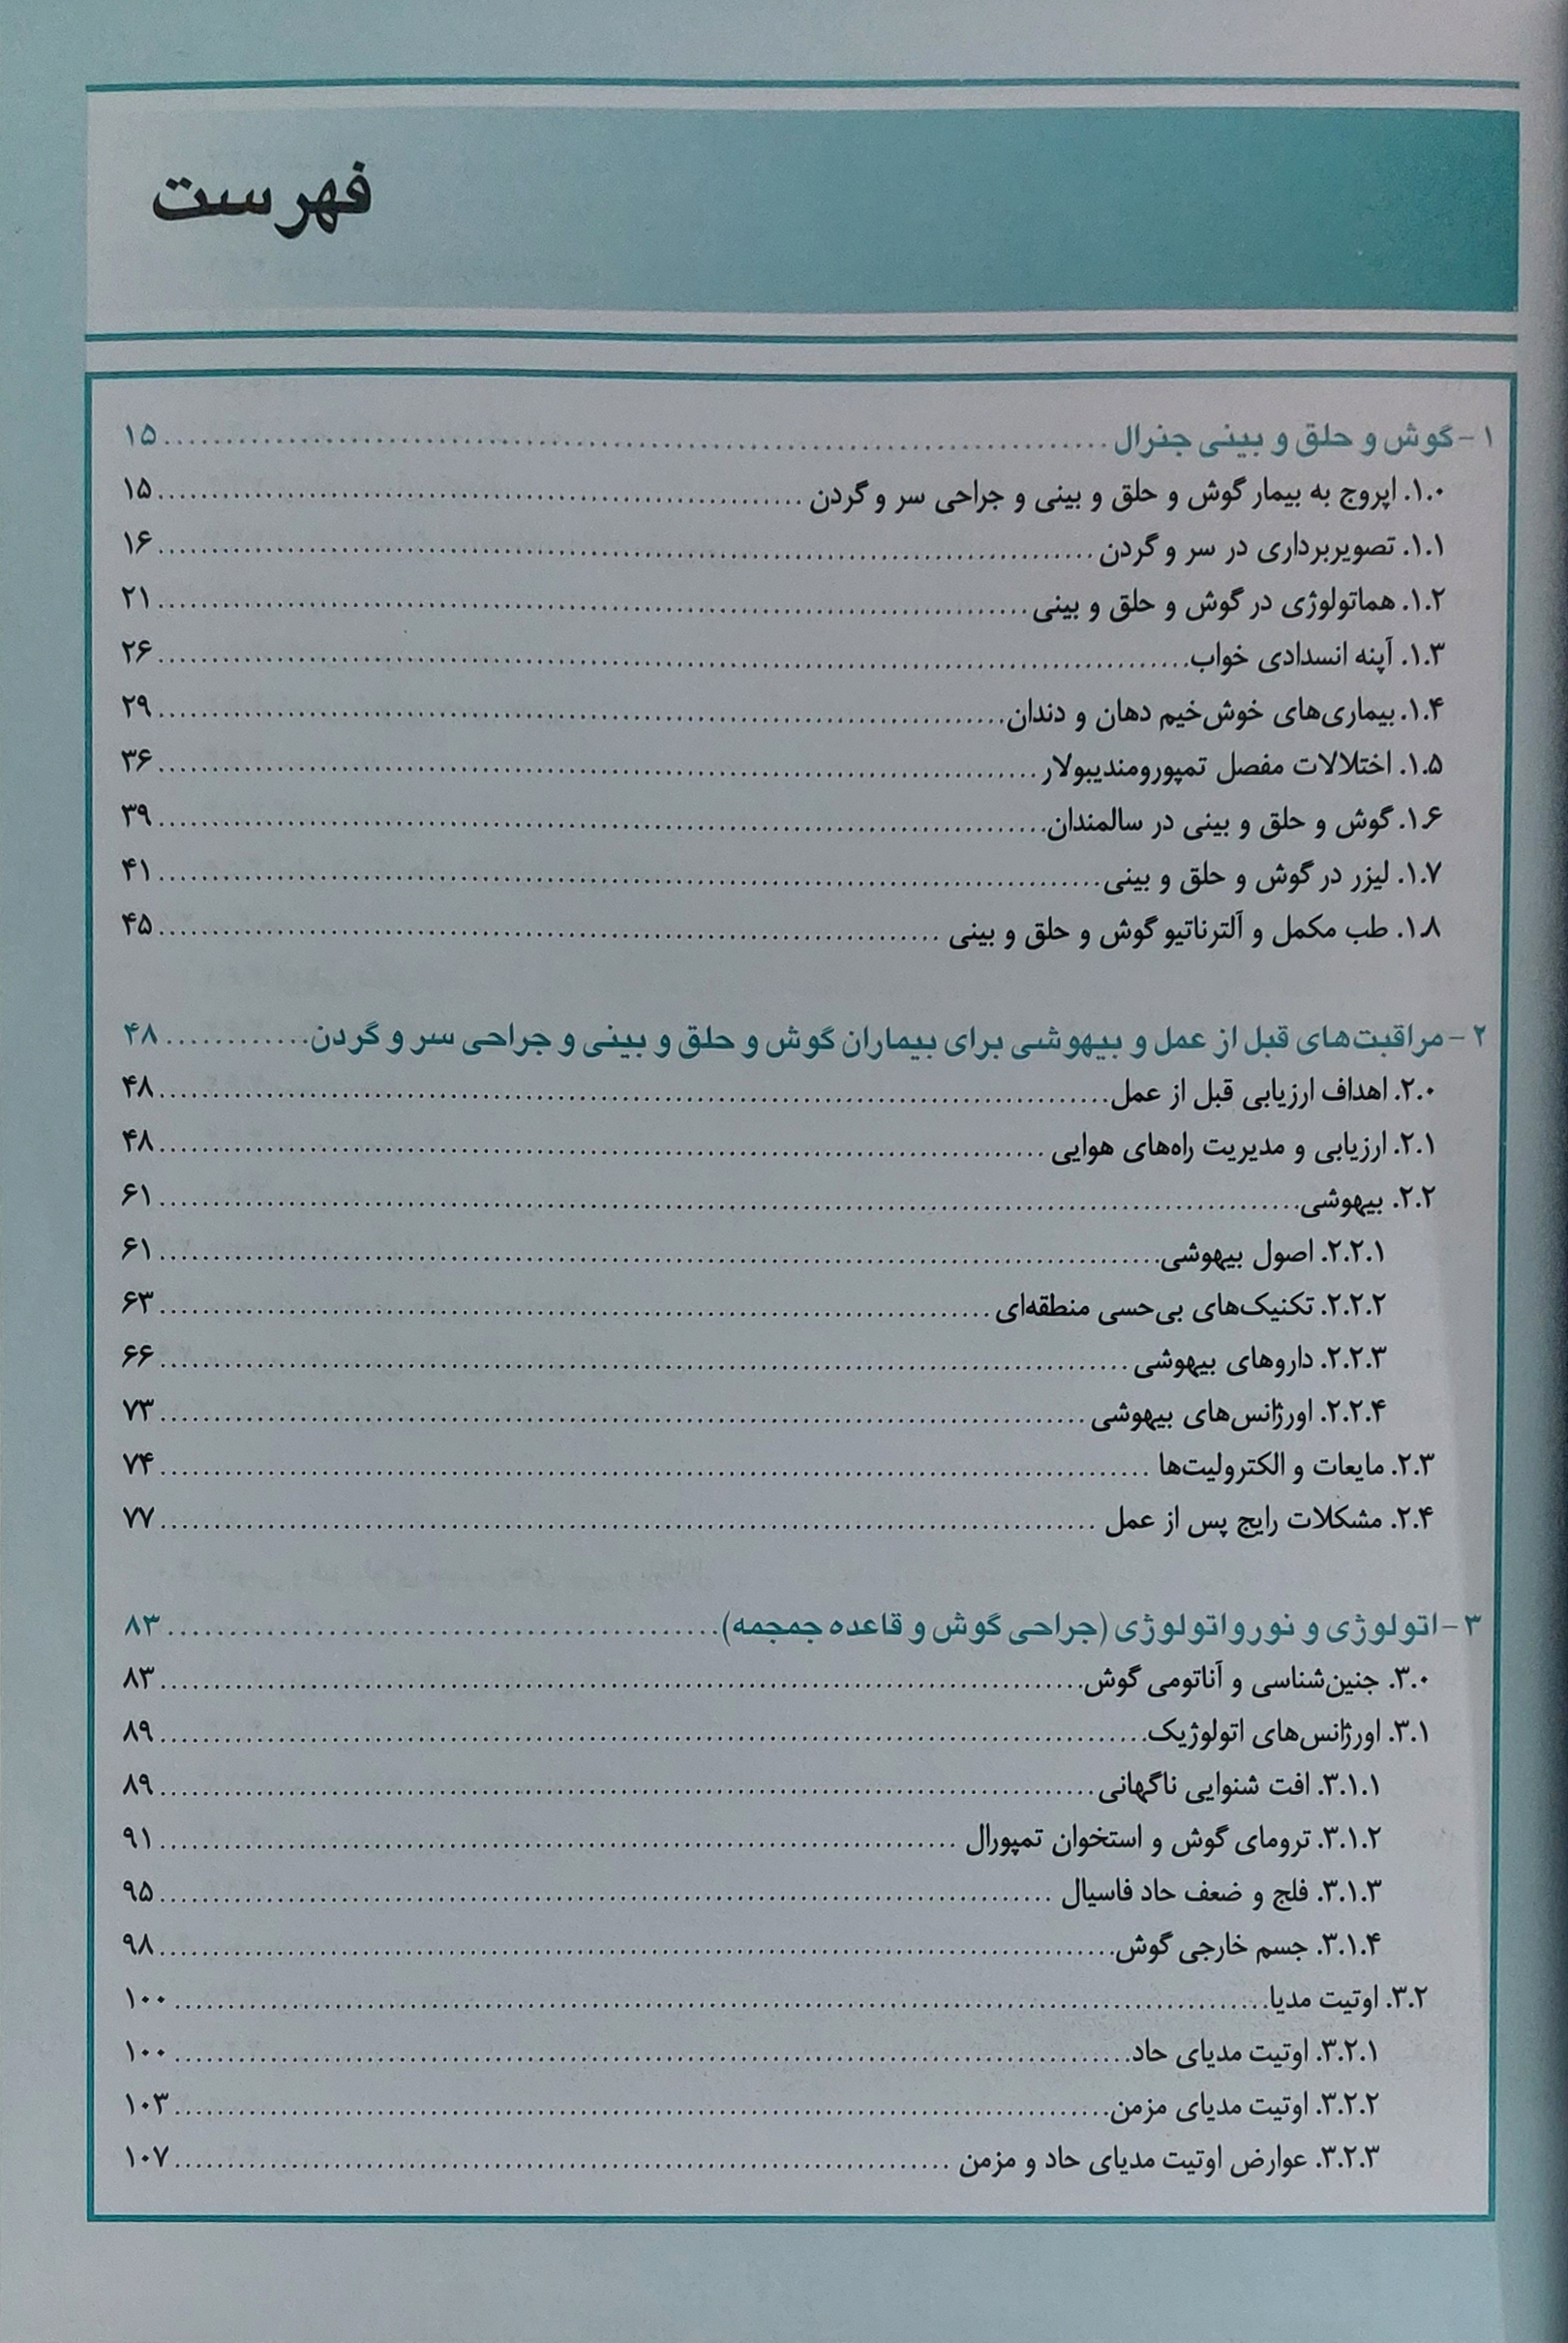 فهرست
۱-گوش و حلق و بینی جنرال ........ ۱۵
۱.۰. اپروج به بیمار گوش و حلق و بینی و جراحی سر و گردن ........ ۱۵
۱.۱. تصویربرداری در سر و گردن ........ ۱۶
۱.۲. هماتولوژی در گوش و حلق و بینی ........ ۲۱
۱.۳. آپنه انسدادی خواب ........ ۲۶
۱.۴. بیماری‌های خوش‌خیم دهان و دندان ........ ۲۹
۱.۵. اختلالات مفصل تمپورومندیبولار ........ ۳۶
۱.۶. گوش و حلق و بینی در سالمندان ........ ۳۹
۱.۷. لیزر در گوش و حلق و بینی ........ ۴۱
۱.۸. طب مکمل و آلترناتیو گوش و حلق و بینی ........ ۴۵
۲-مراقبت‌های قبل از عمل و بیهوشی برای بیماران گوش و حلق و بینی و جراحی سر و گردن ........ ۴۸
۲.۰. اهداف ارزیابی قبل از عمل ........ ۴۸
۲.۱. ارزیابی و مدیریت راه‌های هوایی ........ ۴۸
۲.۲. بیهوشی ........ ۶۱
۲.۲.۱. اصول بیهوشی ........ ۶۱
۲.۲.۲. تکنیک‌های بی‌حسی منطقه‌ای ........ ۶۳
۲.۲.۳. داروهای بیهوشی ........ ۶۶
۲.۲.۴. اورژانس‌های بیهوشی ........ ۷۳
۲.۳. مایعات و الکترولیت‌ها ........ ۷۴
۲.۴. مشکلات رایج پس از عمل ........ ۷۷
۳-اتولوژی و نورواتولوژی (جراحی گوش و قاعده جمجمه) ........ ۸۳
۳.۰. جنین‌شناسی و آناتومی گوش ........ ۸۳
۳.۱. اورژانس‌های اتولوژیک ........ ۸۹
۳.۱.۱. افت شنوایی ناگهانی ........ ۸۹
۳.۱.۲. ترومای گوش و استخوان تمپورال ........ ۹۱
۳.۱.۳. فلج و ضعف حاد فاسیال ........ ۹۵
۳.۱.۴. جسم خارجی گوش ........ ۹۸
۳.۲. اوتیت مدیا ........ ۱۰۰
۳.۲.۱. اوتیت مدیای حاد ........ ۱۰۰
۳.۲.۲. اوتیت مدیای مزمن ........ ۱۰۳
۳.۲.۳. عوارض اوتیت مدیای حاد و مزمن ........ ۱۰۷